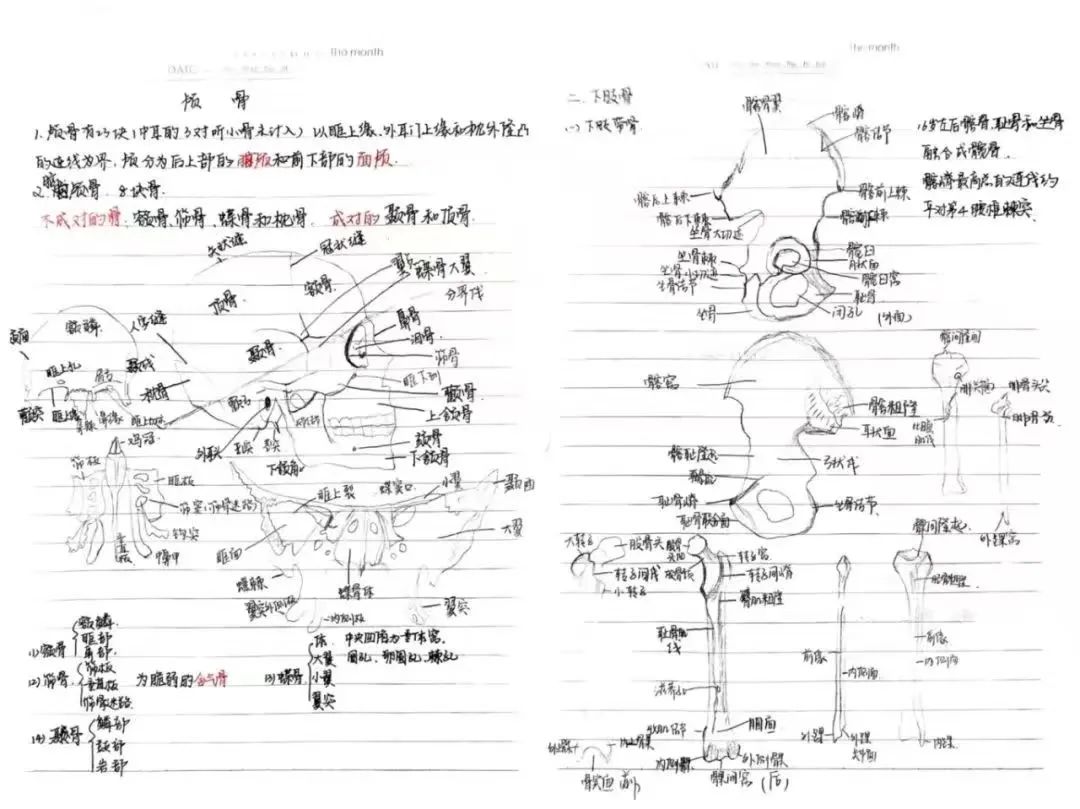 the month
DATE
颅 骨
1. 颅骨有23块(中耳的3对听小骨未计入) 以眶上缘、外耳门上缘和枕外隆凸
的连线为界，颅分为后上部的脑颅和前下部的面颅.
2. 脑颅骨 8块骨.
不成对的骨、额骨、筛骨、蝶骨和枕骨. 成对的颞骨和顶骨.
矢状缝
冠状缝
翼点
蝶骨大翼
顶骨
额骨
分界线
额鳞
人字缝
鼻骨
泪骨
筛骨
颞骨
眶上孔
颞线
枕骨
眶下裂
颧骨
上颌骨
颧突
眶上缘
鼻棘
鸡冠
下颌骨
下颌角
筛板
眶板
筛窦(筛骨迷路)
钩突
垂直板
中鼻甲
眶上裂
蝶窦口
小翼
颞面
大翼
眶面
蝶棘
蝶骨体
翼突外侧板
内侧板
翼突
(1)额骨 额鳞
眶部
鼻部.
(2)筛骨. 筛板
垂直板
筛骨迷路
为脆弱的含气骨
(3)蝶骨 体. 中央凹陷为垂体窝.
大翼 圆孔、卵圆孔、棘孔
小翼
翼突
(4)颞骨 鳞部
鼓部
岩部
the month
二、下肢骨
(一)下肢带骨.
髂骨翼
髂嵴
髂结节
16岁左右髂骨、耻骨和坐骨
融合成髋骨.
髂嵴最高点的连线约
平对第4腰椎棘突.
髂后上棘
髂前上棘
髂后下棘
髂前下棘
坐骨大切迹
坐骨棘
坐骨小切迹
坐骨结节
坐骨
髋臼
月状面
髋臼窝
耻骨
闭孔
(外面)
髂窝
髂粗隆
耳状面
髂耻隆起
弓状线
耻骨嵴
耻骨联合面
坐骨结节
髁间隆起
腓关节面
腓骨头尖
比目鱼肌线
外踝窝
大转子
股骨头
转子间线
小转子
股骨颈
转子窝
转子间嵴
臀肌粗隆
耻骨肌线
滋养孔
收肌结节
腘面
外上髁
内上髁
内侧髁
外侧髁
髌面 前
髁间窝 (后)
前缘
内侧面
外踝
外踝关节面
髁间隆起
胫骨粗隆
前缘
内侧面
内踝